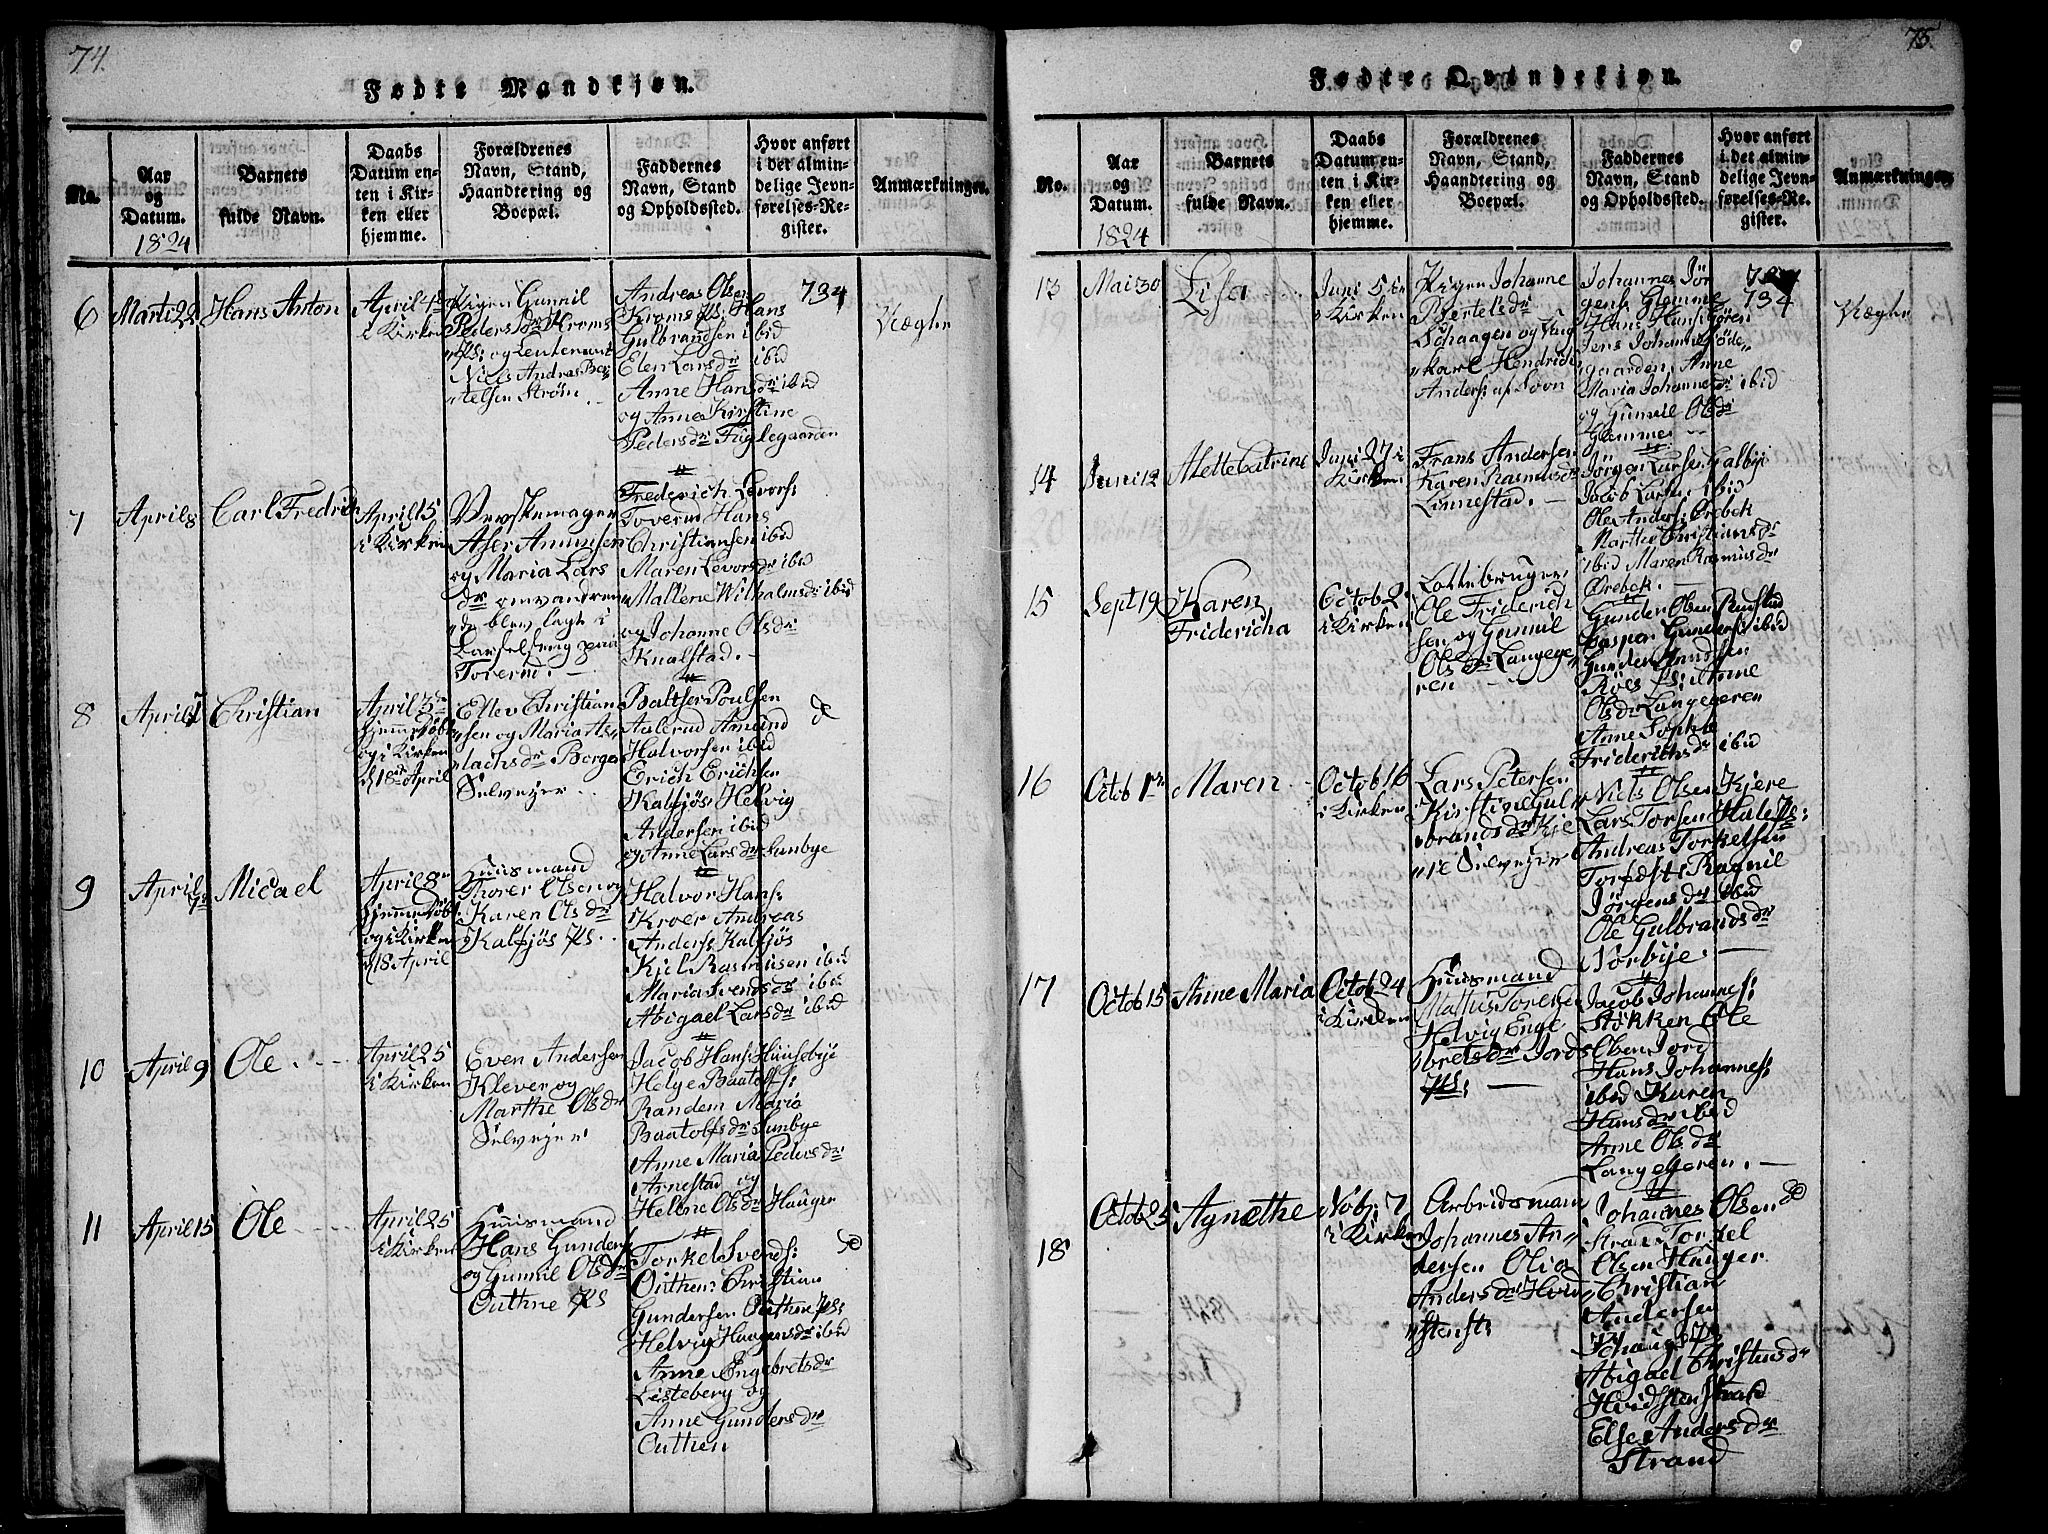 74.
Fødte Mandkjøn.
No.
Aar
og
Datum.
1824
Barnets
fulde Navn.
Daabs
Datum en-
ten i Kir-
ken eller
hjemme.
Forældrenes
Navn, Stand,
Haandtering og
Boepæl.
Faddernes
Navn, Stand
og Opholdssted.
Hvor anført
i det almin-
delige Jevn-
førelses-Re-
gister.
Anmærkninger.
6
Marti 22
Hans Anton
April 4de
i Kirken
Pigen Gunnil
Peders dr Kroms
Ps: og Leutenant
Niels Andreas Ber
telsen Strøm
Andreas Olsen
Kroms Ps: Hans
Gulbrandsen ibid
Elen Lars dr ibid
Anne Hans dr ibid
og Anne Kirstine
Peders dr Fuglegaarden
734
Uægte
7
April 8
Carl Fredrich
April 15
i Kirken
Verskemager
Aser Amunsen
og Maria Lars
dr omvandren
de blev lagt i
Barselseng paa
Toverud.
Frederich Levors:
Toverud Hans
Christiansen ibid
Maren Levors dr ibid
Mallene Wilhalms dr ibid
og Johanne Ols dr
Knalstad.
8
April 1
Christian
April 3de
hjemme døbt
og i Kirken
d 18de April
Ellev Christian
sen og Maria As
lachs dr Borger
Selveyer
Baltser Poulsen
Aulerud Amund
Halvorsen ibid
Erich Erichsen
Kalsjøs Helvig
Andersen ibid
og Anne Lars dr Sunbye
do
9
April 7de
Micael
April 8de
hjemme døbt
og i Kirken
d 18 April
Huusmand
Thorer Olsen og
Karen Ols dr
Kalsjøs Ps.
Halvor Hans:
Kroer Andreas
Anders: Kalsjøs
Kiel Rasmusen ibid
Maria Svends dr ibid
Abigael Lars dr ibid
10
April 9
Ole
April 25
i Kirken
Even Andersen
Klever og
Marthe Ols dr
Selveyer
Jacob Hans: Huusebye
Helge Baatolfs:
Randem Maria
Baatolfs dr Sunbye
Anne Maria Peders dr
Arnestad og
Helene Ols dr Hauger
11
April 15
Ole
April 25
i Kirken
Huusmand
Hans Gunders
og Gunnil Ols dr
Outhne Ps
Torkel Svends:
Outhen: Christian
Gundersen Outhen Ps:
Helvig Haagens dr ibid
Anne Engebrets dr
Listeberg og
Anne Gunders dr
Outhen
do
75.
Fødte Qvindekjøn.
No.
Aar
og
Datum.
1824
Barnets
fulde Navn.
Daabs
Datum en-
ten i Kir-
ken eller
hjemme.
Forældrenes
Navn, Stand,
Haandtering og
Boepæl.
Faddernes
Navn, Stand
og Opholdssted.
Hvor anført
i det almin-
delige Jevn-
førelses-Re-
gister.
Anmærkninger.
13
Mai 30
Lisa
Juni 5te
i Kirken
Pigen Johanne
Biertels dr
Schaagen og Ung
karl Hendrich
Anders: af Sovn
Johannes Jør
gens: Glemme
Hans Hans:
Jens Johannes:
gaarden, Anne
Maria Johannes dr ibid
og Gunnil Ols dr
Glemme
734
Uægte
14
Juni 12
Alette Catrine
Juni 27 i
Kirken
Frans Andersen
Karen Rasmus dr
Linnestad.
Jørgen Larsen Galbye
Jacob Larsen ibid
Ole Anders: Ørebek
Marthe Christians dr
ibid Maren Rasmus dr
Ørebek.
15
Sept 19
Karen
Fridericha
Octob 2
i Kirken
Lottebruger
Ole Friderich
sen og Gunnil
Ols dr Langege
ren
Gunder Olsen Rustad
Casper Gunders: ibid
Gunder Amdsen
Røes Ps: Anne
Ols dr Langegeren
Anne Sophie
Friderichs dr ibid
16
Octob 1ste
Maren
Octob 16
i Kirken
Lars Petersen
Kirstine Gul
brands dr Kie
re Selveyer
Niels Olsen Kjere
Lars Torsen Hale Ps:
Andreas Torkelsen
Torfdst: Ragnil
Jørgens dr ibid
Ole Gulbrands dr
Norbye.
17
Octob 15
Anne Maria
Octob 24
i Kirken
Huusmand
Mathis Toresen
Helvig Enge
brets dr Jords
Ps:
Jacob Johannes:
Støkken Ole
Olsen Jord
Hans Johannes:
ibid Karen
Hans dr ibid
Anne Ols dr
Langegeren.
18
Octob 25
Agnethe
Nobr: 7
i Kirken
Arbeidsmann
Johannes An
dersen Olia
Anders dr Hvid
stenst:
Johannes Olsen
Stran Torkel
Olsen Hauger
Christian
Andersen
Schaugs Ps
Abigael Christens dr
Hvidsten Strand
Else Anders dr
Strand
do